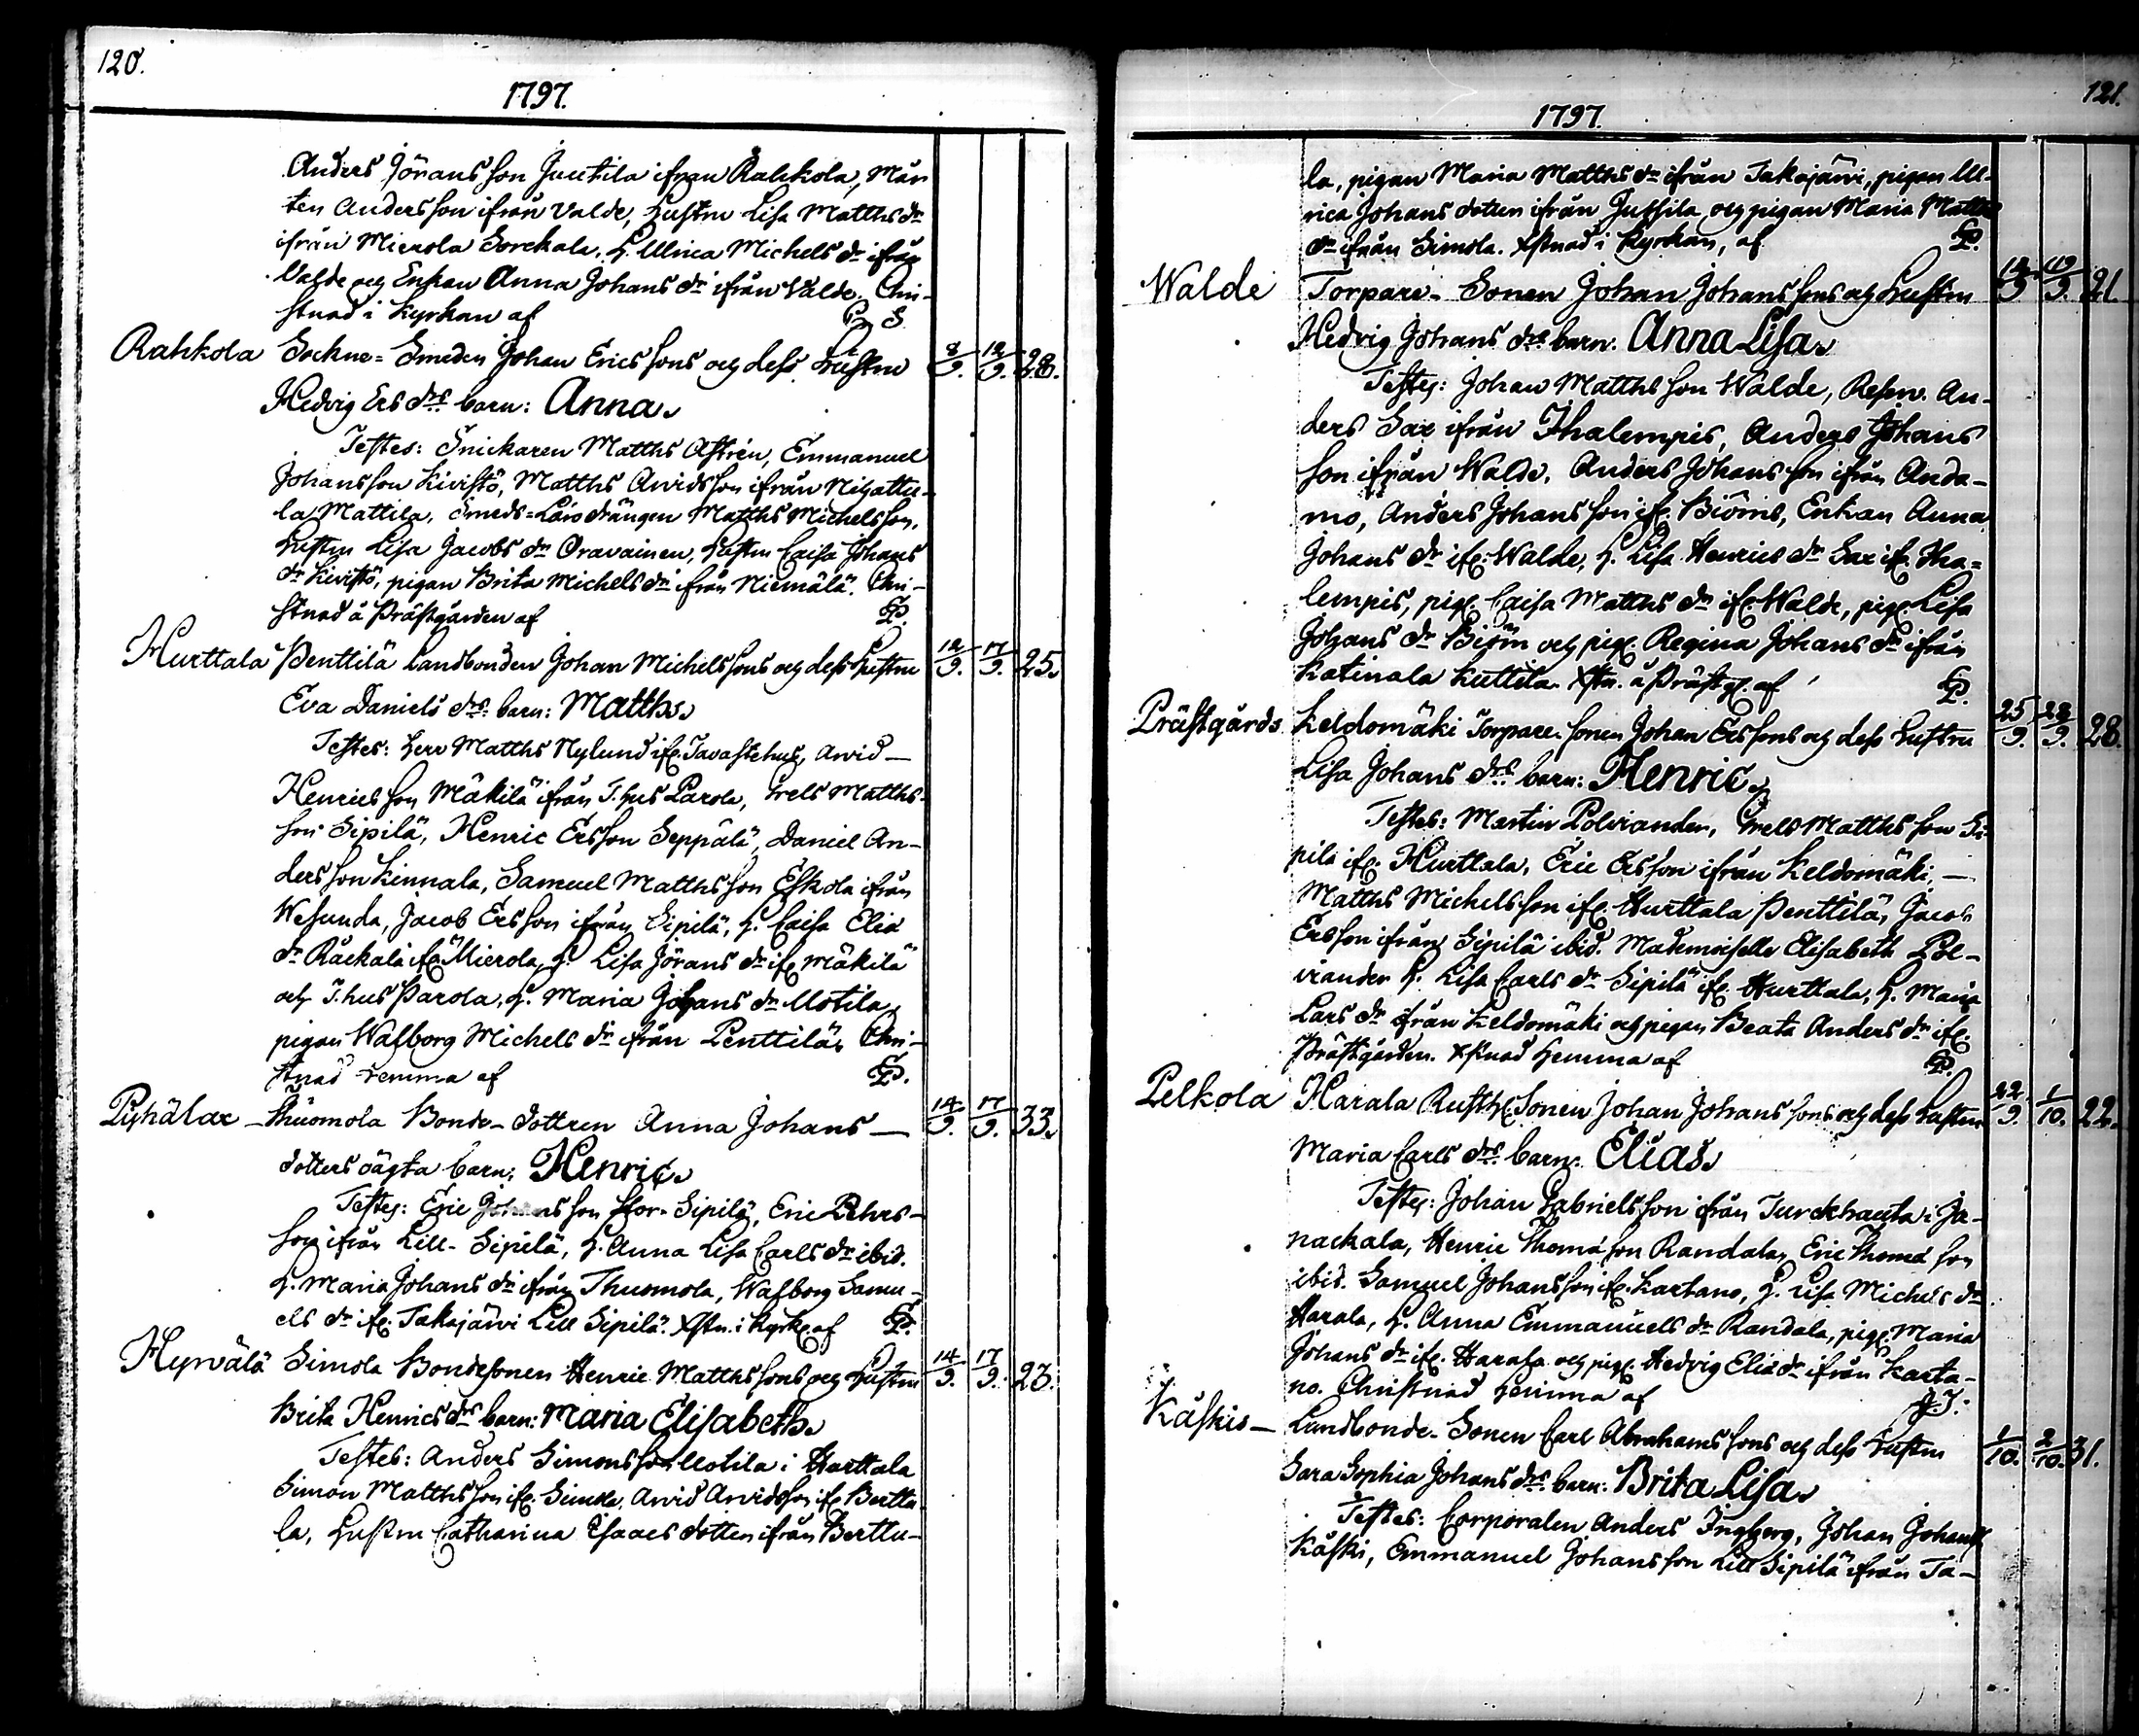 120.
1797.
Anders Jöransson Juutila ifrån Rahkola, Mår-
ten Andersson ifrån Valde, Hustru Lisa Matths dr
ifrån Mierola Sorckala, H. Ulrica Michels dr ifrån
Valde och Enkan Anna Johans dr ifrån Valde. Chri-
stnad i Kyrkan af
Rahkola Sockne-Smeden Johan Ericssons och dess Hustru 8/9. 12/9. 28.
Hedvig Ers drs barn: Anna.
Testes: Snickaren Matths Astrén, Emmanuel
Johansson Kivistö, Matths Arvidsson ifrån Nihattu-
la Mattila, Smeds-Lärodrängen Matths Michelsson,
Hustru Lisa Jacobs dr Oravainen, Hustru Caisa Johans
dr Kivistö, pigan Brita Michels dr ifrån Niemälä. Chri-
stnad å Prästgården af EP.
Hurttala Penttilä Landbonden Johan Michelssons och dess Hustru 12/9. 17/9. 25.
Eva Daniels drs barn: Matths.
Testes: Herr Matths Nylund ifr. Tavastehus, Arvid
Henricsson Mäkilä ifrån T.hus Parola, Grels Matths-
son Sipilä, Henric Ersson Seppälä, Daniel An-
dersson Kinnala, Samuel Matthsson Eskola ifrån
Wesunda, Jacob Ersson ifrån Sipilä, H. Caisa Elia
dr Räckälä ifr. Mierola, H. Lisa Jörans dr ifr. Mäkilä
och T.hus Parola, H. Maria Johans dr Uotila,
pigan Walborg Michels dr ifrån Penttilä. Chri-
stnad hemma af EP.
Pyhälax Thuomola Bonde-dottren Anna Johans 14/9. 17/9. 33.
dotters oägta barn: Henric.
Testes: Eric Johansson Stor-Sipilä, Eric Pehrs-
son ifrån Lill-Sipilä, H. Anna Lisa Carls dr ibid.
H. Maria Johans dr ifrån Thuomola, Walborg Samu-
els dr ifr. Takajärvi Lill Sipilä. Xstn. i Kyrk. af EP.
Hyrvälä Simola Bondesonen Henric Matthssons och Hustru 14/9. 17/9. 23.
Brita Henrics drs barn: Maria Elisabeth.
Testes: Anders Simonsson Uotila i Hurttala
Simon Matthsson ifr. Simola, Arvid Arvidsson ifr. Berttu
la, Hustru Catharina Isaacs dotter ifrån Berttu-
121.
1797.
la, pigan Maria Matths dr ifrån Takajärvi, pigan Ul-
rica Johans dotter ifrån Jussila och pigan Maria Matths
dr ifrån Simola. Xstnad i Kyrkan, af EP.
Walde Torpare-Sonen Johan Johanssons och Hustru 12/9 19/9. 21.
Hedvig Johans drs barn. Anna Lisa.
Testes: Johan Matthsson Walde, Reserv. An-
ders Sax ifrån Ihalempis, Anders Johans
son ifrån Walde, Anders Johansson ifrån Anda-
mo, Anders Johansson ifr. Biörns, Enkan Anna
Johans dr ifr. Walde, H. Lisa Henrics dr Sax ifr. Iha-
lempis, pig. Caisa Matths dr ifr. Walde, pig. Lisa
Johans dr Biörn och pig. Regina Johans dr ifrån
Katinala Kuttila. Xtn. å Prästg. af EP.
Prästgårds Keldomäki Torpare-sonen Johan Erssons och dess Hustru 25/9. 28/9. 28.
Lisa Johans drs barn: Henric.
Testes: Martin Polviander, Grels Matthsson Si-
pilä ifr. Hurttala, Eric Ersson ifrån Keldomäki,
Matths Michelsson ifr. Hurttala Penttilä, Jacob
Ersson ifrån Sipilä ibid. Mademoiselle Elisabeth Pol-
viander H. Lisa Carls dr Sipilä ifr. Hurttala, H. Maria
Lars dr ifrån Keldomäki och pigan Beata Anders dr ifr.
Prästgården. Xstnad hemma af EP.
Pelkola Harala Rusth. Sonen Johan Johanssons och dess Hustru 22/9. 1/10. 22.
Maria Carls drs barn: Elias.
Testes: Johan Gabrielsson ifrån Turckhauta i Ja-
nackala, Henric Thomæson Randala, Eric Thomæ son
ibid. Samuel Johansson ifr. Kartano, H. Lisa Michels dr
Harala, H. Anna Emmanuels dr Randala, pig. Maria
Johans dr ifr. Harala och pig. Hedvig Elia dr ifrån Karta-
no. Christnad hemma af
Käskis Landbonde-Sonen Carl Abrahamssons och dess Hustru 1/10. 2/10. 31.
Sara Sophia Johans drs barn: Brita Lisa.
Testes: Corporalen Anders Ingberg, Johan Johanss
Käski, Emmanuel Johansson Lill Sipilä ifrån Ta-